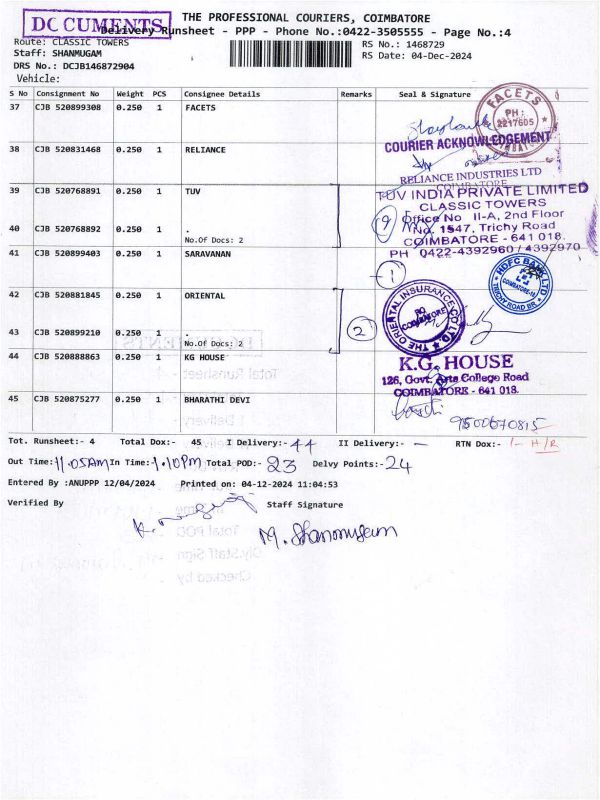 DOCUMENTS
THE PROFESSIONAL COURIERS, COIMBATORE
Delivery Runsheet - PPP - Phone No.:0422-3505555 - Page No.:4
Route: CLASSIC TOWERS
RS No.: 1468729
Staff: SHANMUGAM
RS Date: 04-Dec-2024
DRS No.: DCJB146872904
Vehicle:
S No Consignment No Weight PCS Consignee Details Remarks Seal & Signature
37 CJB 520899308 0.250 1 FACETS
FACETS
PH :
2217605
COIMBATORE
COURIER ACKNOWLEDGEMENT
38 CJB 520831468 0.250 1 RELIANCE
RELIANCE INDUSTRIES LTD
COIMBATORE
39 CJB 520768891 0.250 1 TUV
TUV INDIA PRIVATE LIMITED
CLASSIC TOWERS
Office No II-A, 2nd Floor
No. 1547, Trichy Road
COIMBATORE - 641 018.
PH 0422-4392960 / 4392970
40 CJB 520768892 0.250 1 .
No.Of Docs: 2
41 CJB 520899403 0.250 1 SARAVANAN
1
HDFC BANK LTD
COIMBATORE-18
TRICHY ROAD BR.
42 CJB 520881845 0.250 1 ORIENTAL
THE ORIENTAL INSURANCE CO LTD.
COIMBATORE
43 CJB 520899210 0.250 1 .
No.Of Docs: 2
2
44 CJB 520888863 0.250 1 KG HOUSE
K.G. HOUSE
126, Govt. Arts College Road
COIMBATORE - 641 018.
45 CJB 520875277 0.250 1 BHARATHI DEVI
9500670815
Tot. Runsheet:- 4 Total Dox:- 45 I Delivery:- 44 II Delivery:- - RTN Dox:- 1- H/R
Out Time: 11.05AM In Time: 1.10PM Total POD:- 23 Delvy Points:- 24
Entered By :ANUPPP 12/04/2024 Printed on: 04-12-2024 11:04:53
Verified By
Staff Signature
M. Shanmugam